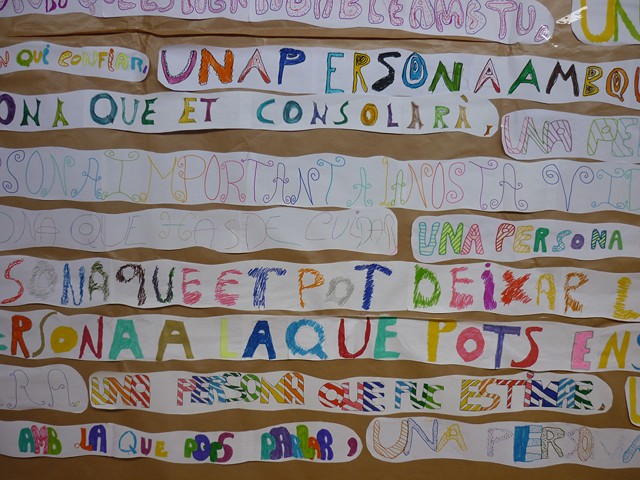 AMB TU.
UN
N QUI CONFIAR, UNA PERSONA AMB QU
ONA QUE ET CONSOLARÀ, UNA PE
SONA IMPORTANT A LA NOSTA VID
ONA QUE HAS DE CUIDAR UNA PERSONA
SONA QUE ET POT DEIXAR
ERSONA A LA QUE POTS ENS
RA UNA PERSONA QUE TE ESTIME,
AMB LA QUE POTS PARLAR, UNA PERSONA